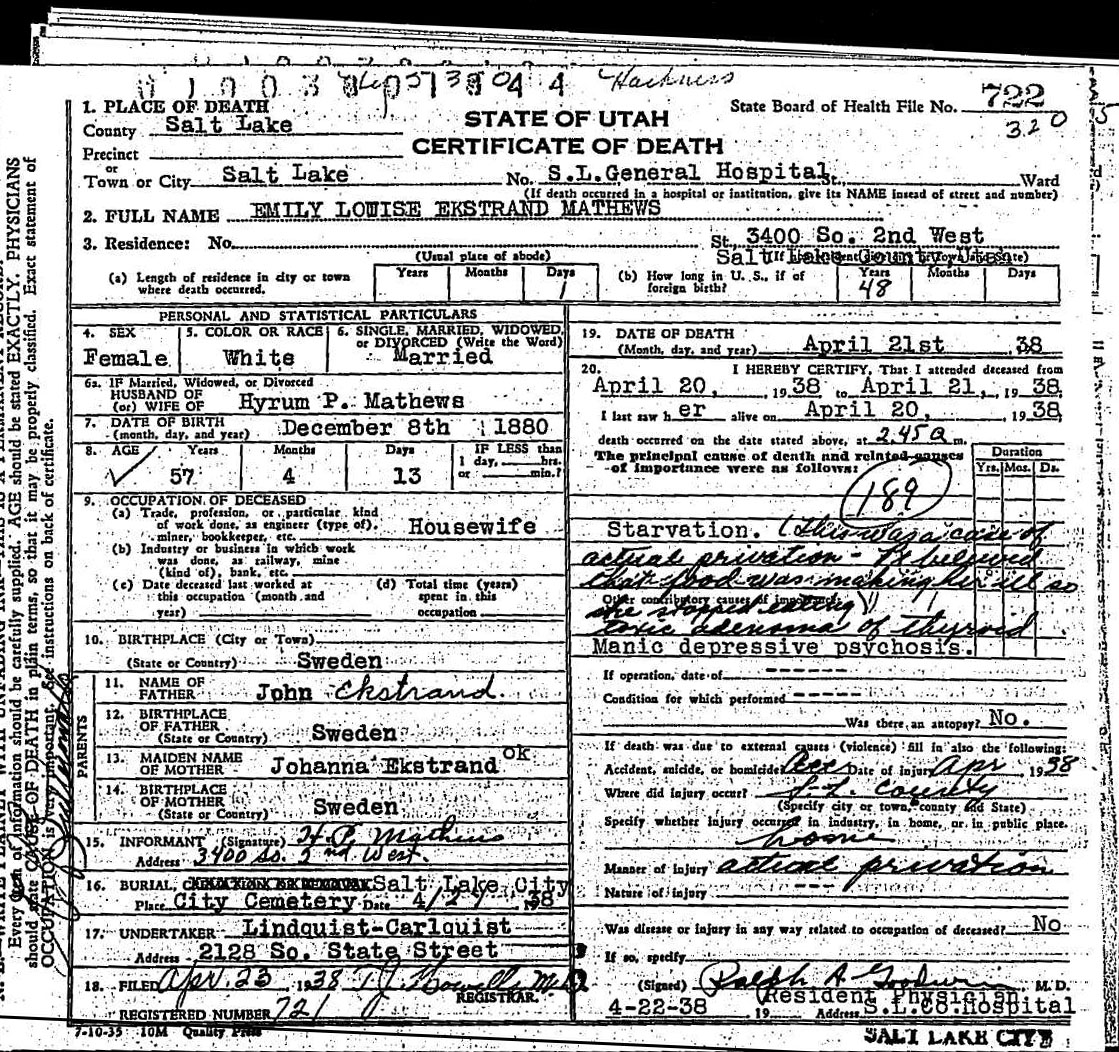 Hackness
1. PLACE OF DEATH
County Salt Lake
STATE OF UTAH
CERTIFICATE OF DEATH
State Board of Health File No. 722
320
Precinct
or
Town or City Salt Lake No. S.L.General Hospital St., Ward
(If death occurred in a hospital or institution, give its NAME insead of street and number)
2. FULL NAME EMILY LOWISE EKSTRAND MATHEWS
3. Residence: No. St. 3400 So. 2nd West
(Usual place of abode) Salt Lake County Utah
(a) Length of residence in city or town where death occurred. Years Months Days 1
(b) How long in U. S., if of foreign birth? Years 48 Months Days
PERSONAL AND STATISTICAL PARTICULARS
4. SEX Female
5. COLOR OR RACE White
6. SINGLE, MARRIED, WIDOWED, or DIVORCED (Write the Word) Married
6a. IF Married, Widowed, or Divorced
HUSBAND OF
(or) WIFE OF Hyrum P. Mathews
7. DATE OF BIRTH
(month, day, and year) December 8th 1880
8. AGE Years Months Days IF LESS than
1 day, hrs.
or min.?
57 4 13
9. OCCUPATION OF DECEASED
(a) Trade, profession, or particular kind
of work done, as engineer (type of),
miner, bookkeeper, etc. Housewife
(b) Industry or business in which work
was done, as railway, mine
(kind of), bank, etc.
(c) Date deceased last worked at
this occupation (month and
year)
(d) Total time (years)
spent in this
occupation
10. BIRTHPLACE (City or Town)
(State or Country) Sweden
PARENTS
11. NAME OF
FATHER John Ekstrand
12. BIRTHPLACE
OF FATHER
(State or Country) Sweden
13. MAIDEN NAME
OF MOTHER Johanna Ekstrand ok
14. BIRTHPLACE
OF MOTHER
(State or Country) Sweden
15. INFORMANT (Signature) H. P. Mathews
Address 3400 So. 2nd West.
16. BURIAL, Salt Lake City
Place City Cemetery Date 4/24 1938
17. UNDERTAKER Lindquist-Carlquist
Address 2128 So. State Street
18. FILED Apr. 23 1938 REGISTRAR.
REGISTERED NUMBER 721
7-10-35 10M Quality Press
19. DATE OF DEATH
(Month, day, and year) April 21st, 38
20. I HEREBY CERTIFY, That I attended deceased from
April 20, 1938 to April 21, 1938.
I last saw her alive on April 20, 1938,
death occurred on the date stated above, at 2.45 a m.
The principal cause of death and related causes
of importance were as follows:
Duration
Yrs. Mos. Ds.
189
Starvation. (this was a case of
actual privation - Pt believed
that food was making her ill so
Other contributory causes of importance:
she stopped eating)
toxic adenoma of thyroid
Manic depressive psychosis.
If operation, date of
Condition for which performed
Was there an autopsy? No.
If death was due to external causes (violence) fill in also the following:
Accident, suicide, or homicide Acc Date of injury Apr 1938
Where did injury occur? S. L. County
(Specify city or town, county and State)
Specify whether injury occurred in industry, in home, or in public place.
home
Manner of injury actual privation
Nature of injury
Was disease or injury in any way related to occupation of deceased? No
If so, specify
(Signed) Ralph A Goodwin M. D.
(Resident Physician
4-22-38 19 Address S.L.Co.Hospital
SALT LAKE CITY
Every item of information should be carefully supplied. AGE should be stated EXACTLY. PHYSICIANS
should state CAUSE OF DEATH in plain terms, so that it may be properly classified. Exact statement of
OCCUPATION is very important. See instructions on back of certificate.